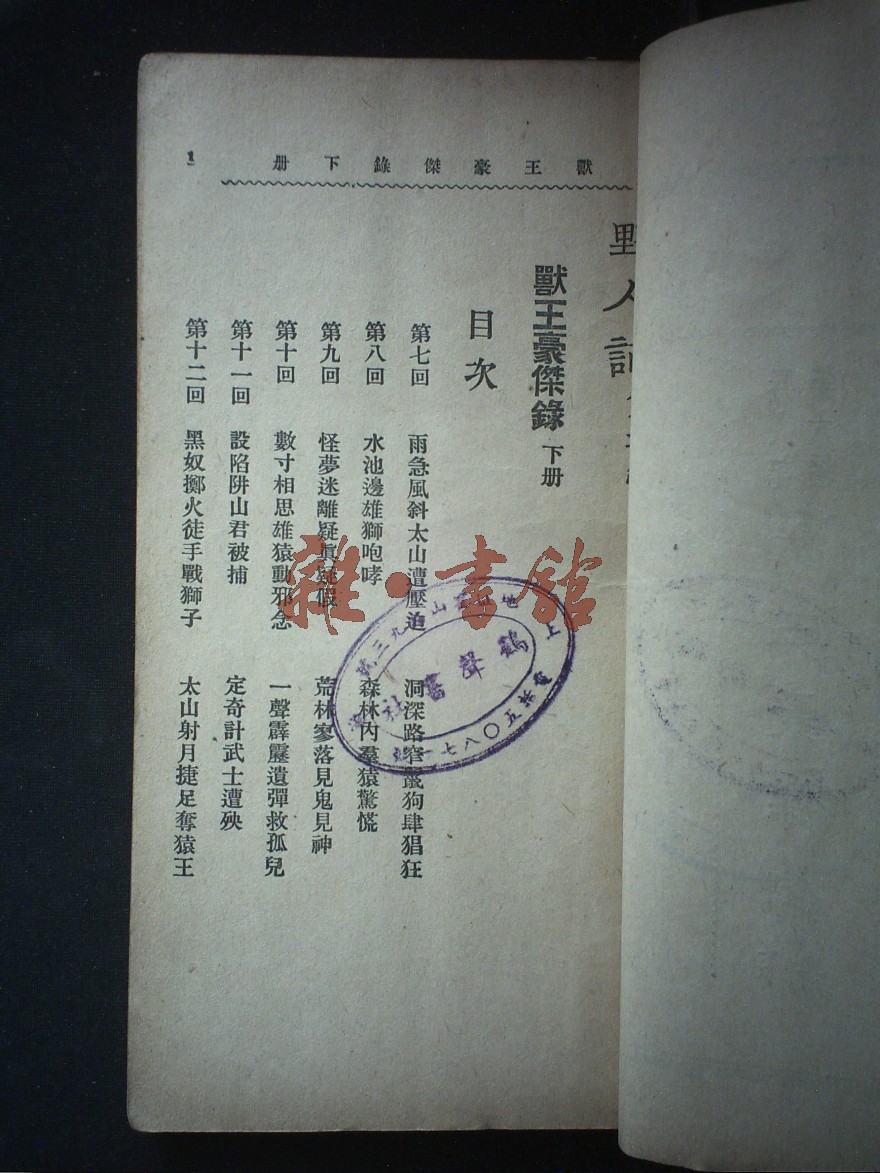 獸王豪傑錄下册
1
野人記
獸王豪傑錄 下册
目次
第七回 雨急風斜太山遭壓迫 洞深路窄鬣狗肆猖狂
第八回 水池邊雄獅咆哮 森林內羣猿驚慌
第九回 怪夢迷離疑眞疑假 荒林寥落見鬼見神
第十回 數寸相思雄猿動邪念 一聲霹靂遺彈救孤兒
第十一回 設陷阱山君被捕 定奇計武士遭殃
第十二回 黑奴擲火徒手戰獅子 太山射月捷足奪猿王
雜·書館
鶴聲書社
上
山
九三號
電話五〇八七一